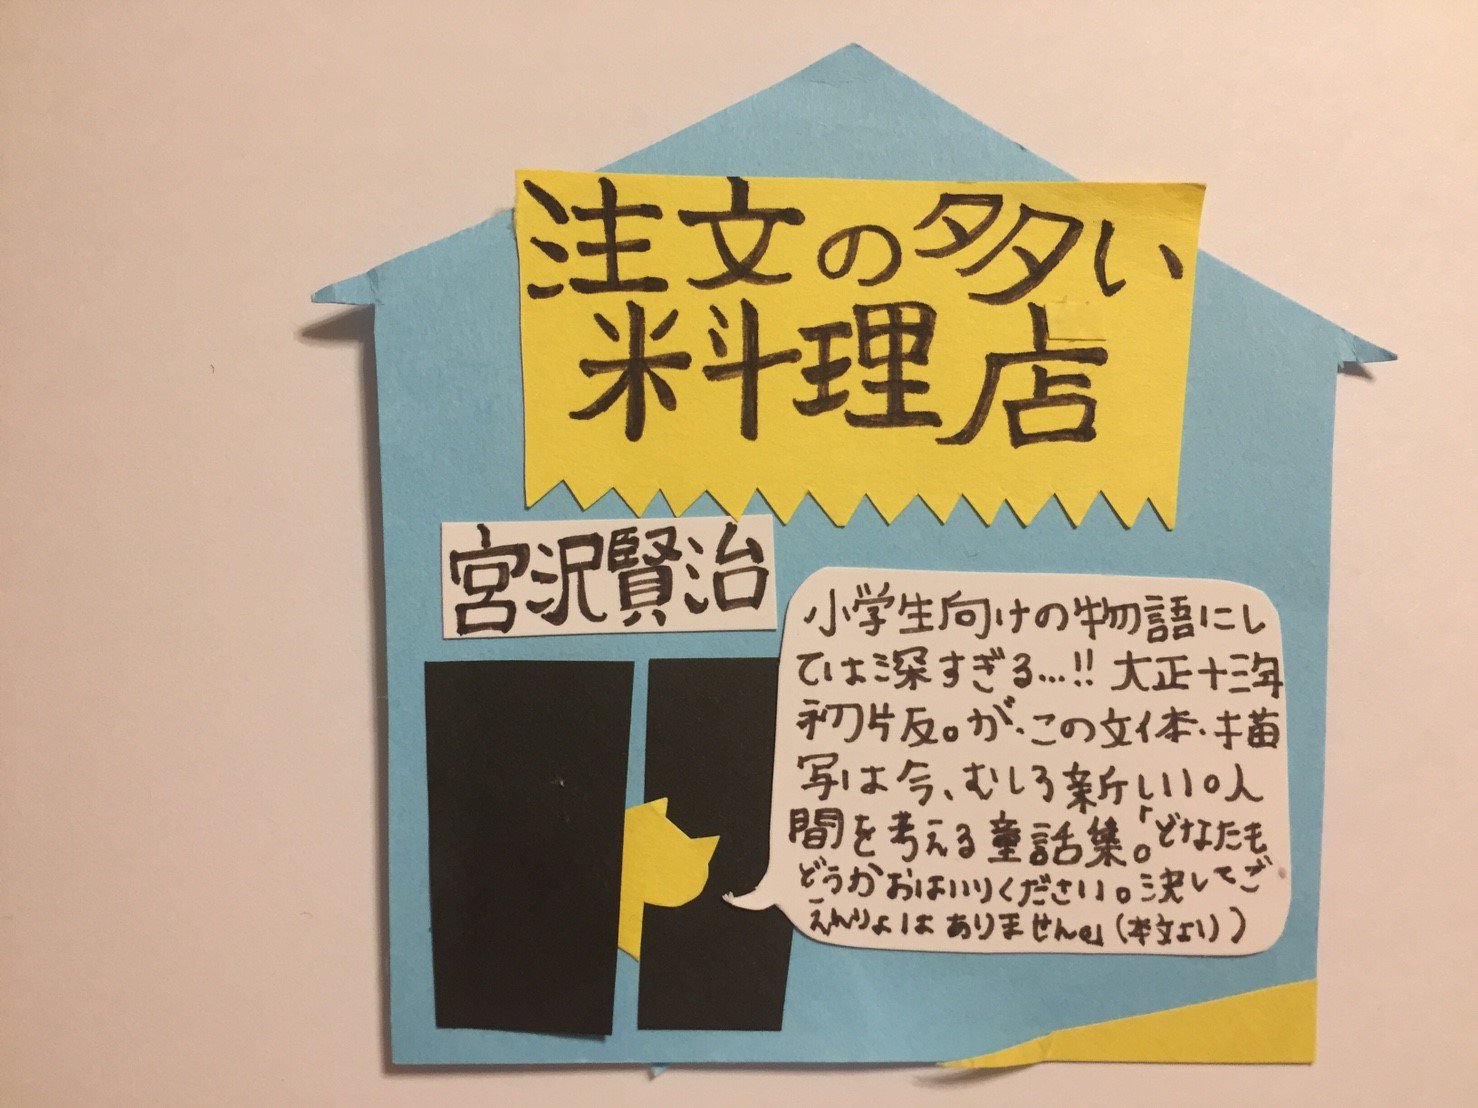 注文の多い
料理店
宮沢賢治
小学生向けの物語にし
ては深すぎる…!! 大正十三年
初版。が、この文体・描
写は今、むしろ新しい。人
間を考える童話集。「どなたも
どうかおはいりください。決してご
えんりょはありません。」(本文より)